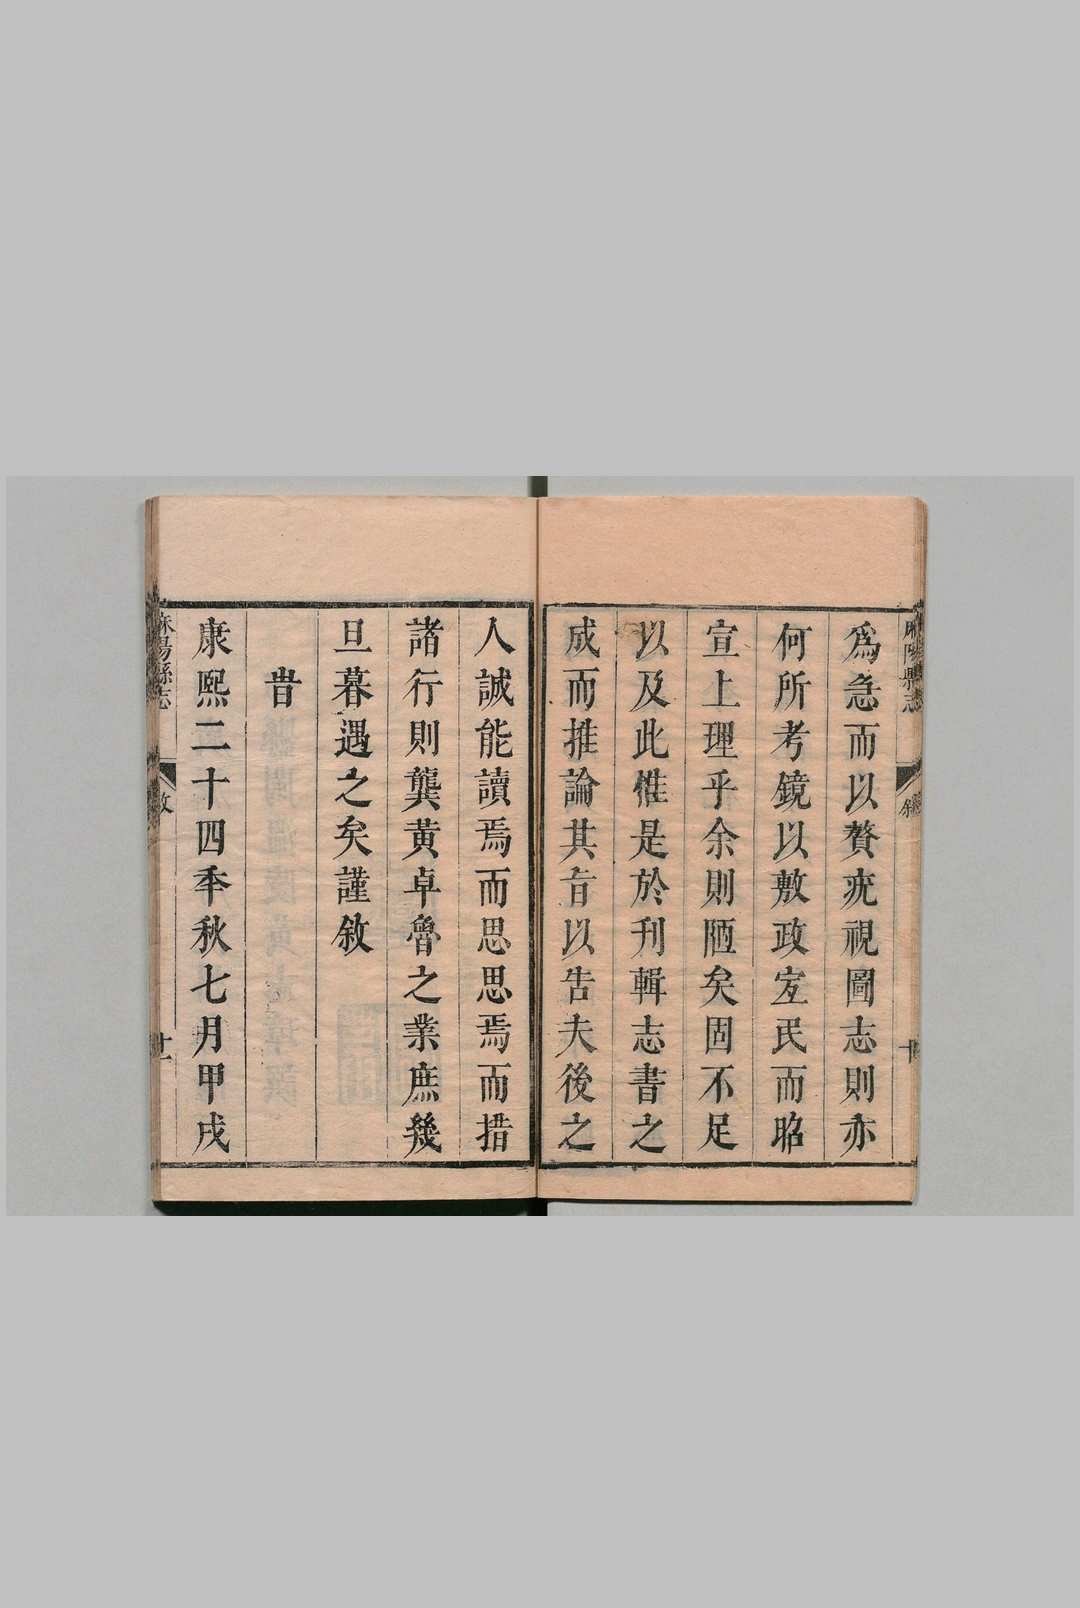 麻陽縣志
敘
十
爲急而以贅疣視圖志則亦
何所考鏡以敷政宜民而昭
宣上理乎余則陋矣固不足
以及此惟是於刋輯志書之
成而推論其旨以告夫後之
人誠能讀焉而思思焉而措
諸行則龔黃卓魯之業庶幾
旦暮遇之矣謹敘
旹
康熙二十四秊秋七月甲戌
麻陽縣志
敘
十一